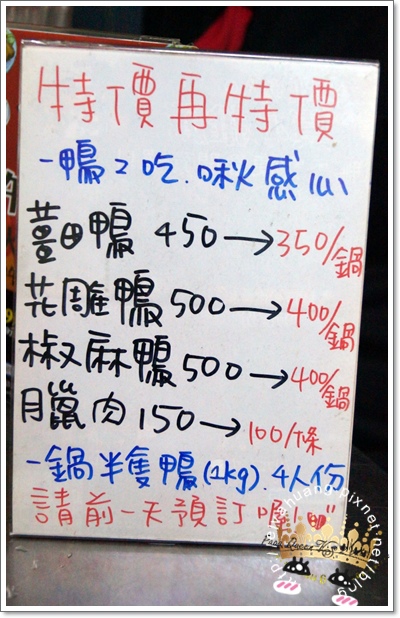 特價再特價
一鴨2吃.啾感心
薑母鴨 450→350/鍋
花雕鴨 500→400/鍋
椒麻鴨 500→400/鍋
臘肉 150→100/條
一鍋半隻鴨(1kg).4人份
請前一天預訂喔!